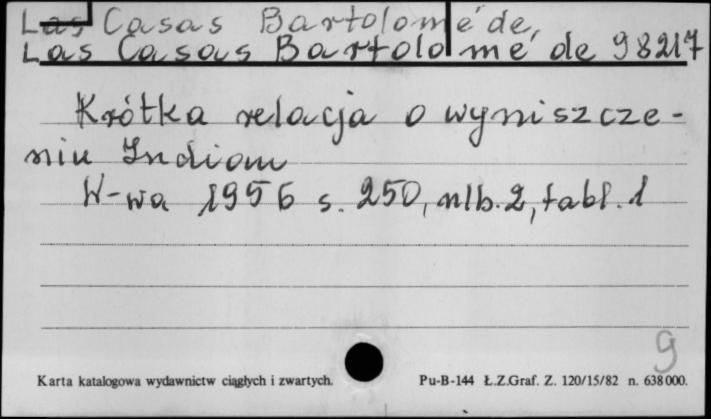 Las Casas Bartolomé de,
Las Casas Bartolomé de 98217
Krótka relacja o wyniszcze-
niu Indian
W-wa 1956 s. 250, nlb. 2, tabl. 1
9
Karta katalogowa wydawnictw ciągłych i zwartych. Pu-B-144 Ł.Z.Graf. Z. 120/15/82 n. 638000.